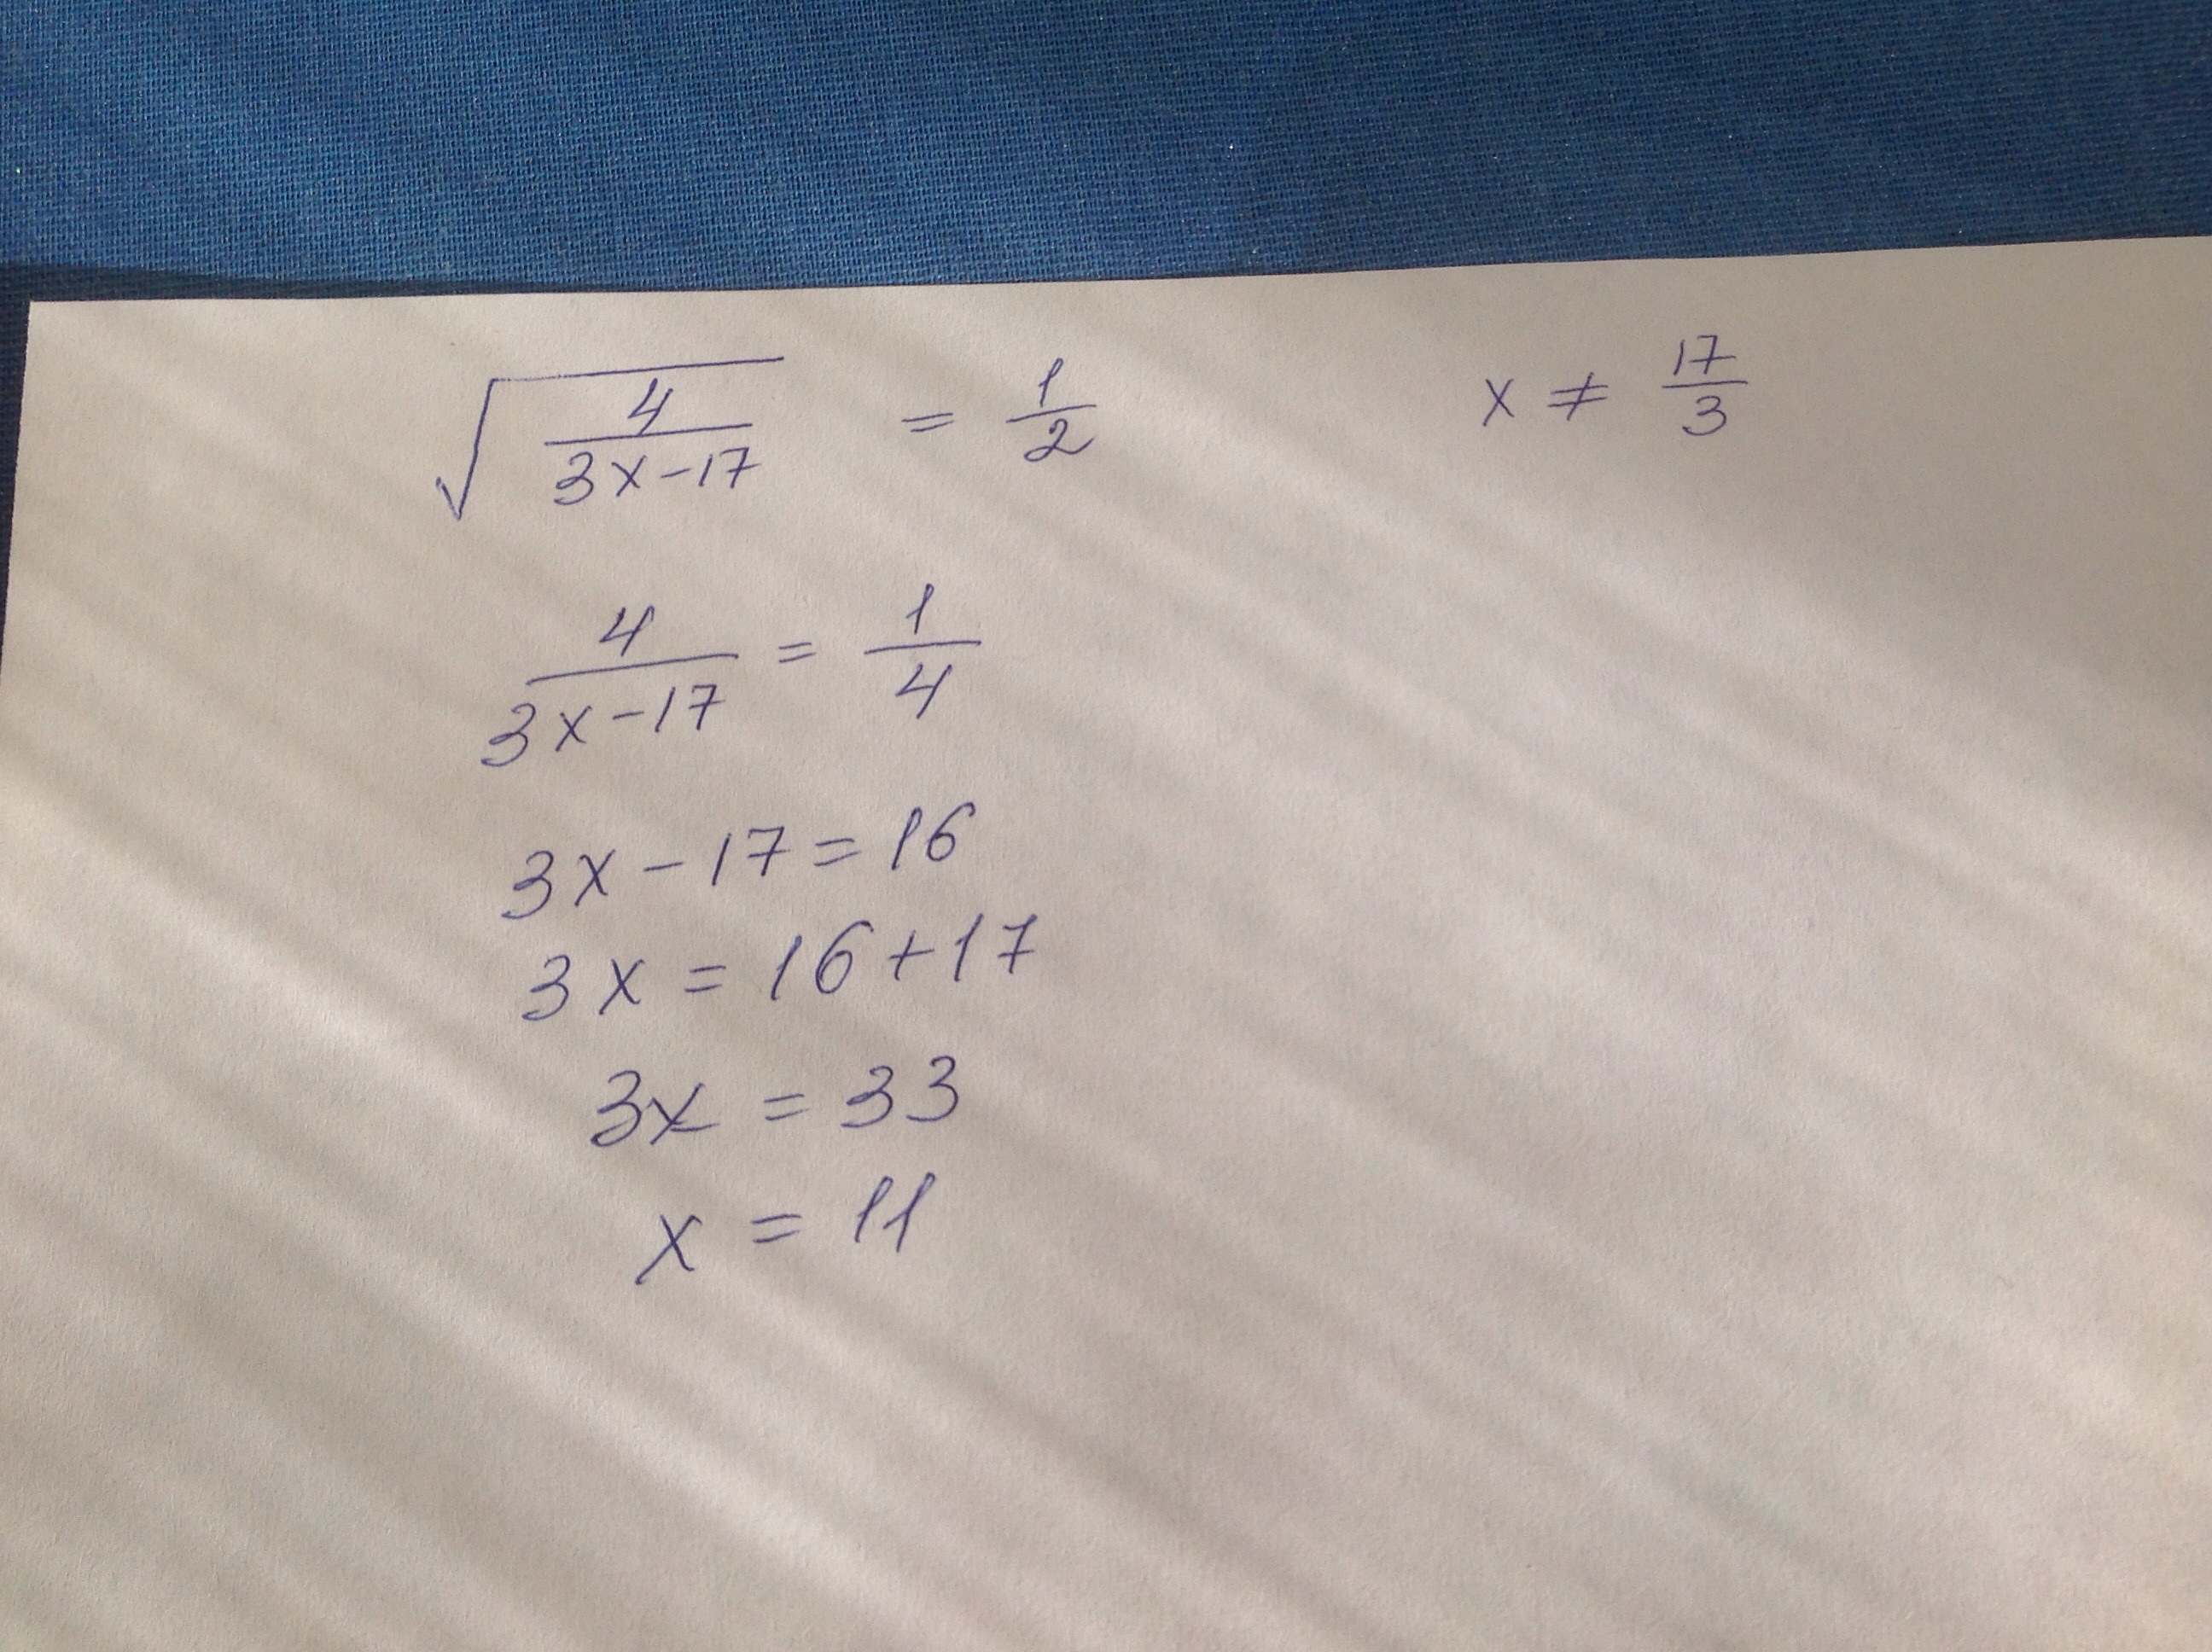 √(4/(3x-17)) = 1/2   x ≠ 17/3
4/(3x-17) = 1/4
3x-17=16
3x=16+17
3x=33
x=11